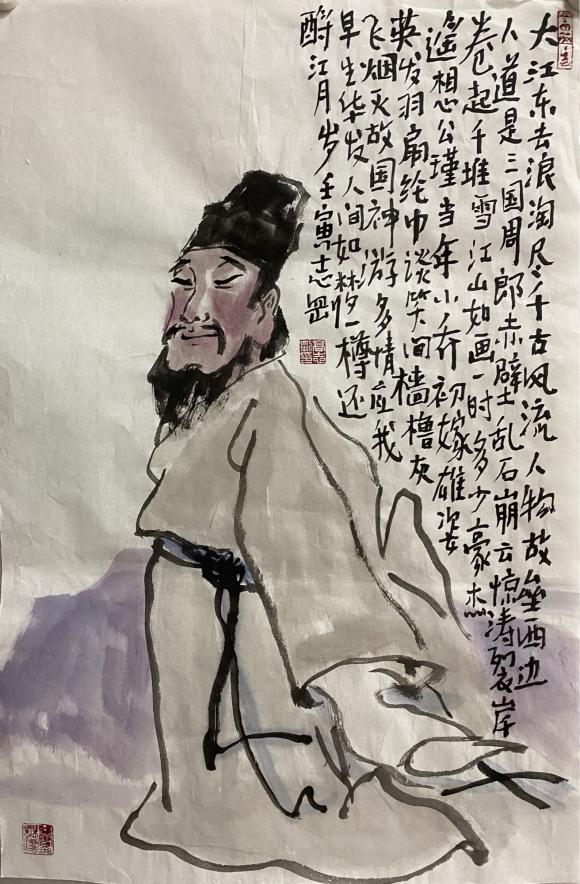 大江东去浪淘尽千古风流人物故垒西边
人道是三国周郎赤壁乱石崩云惊涛裂岸
卷起千堆雪江山如画一时多少豪杰
遥想公瑾当年小乔初嫁雄姿
英发羽扇纶巾谈笑间樯橹灰
飞烟灭故国神游多情应我
早生华发人间如梦一樽还
酹江月岁壬寅志